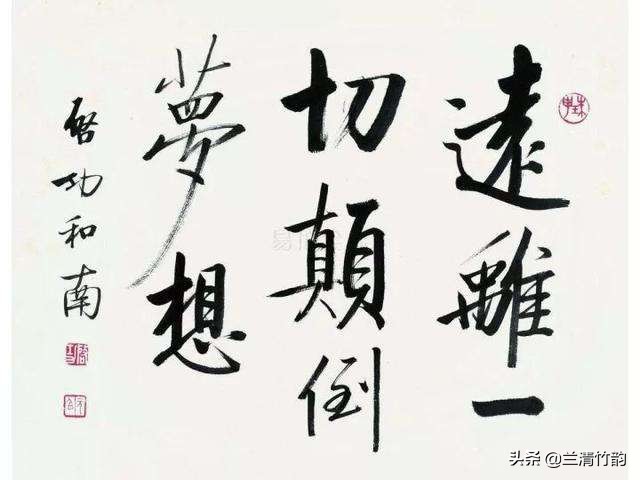 遠離一
切顛倒
夢想
啓功和南
头条 @兰清竹韵